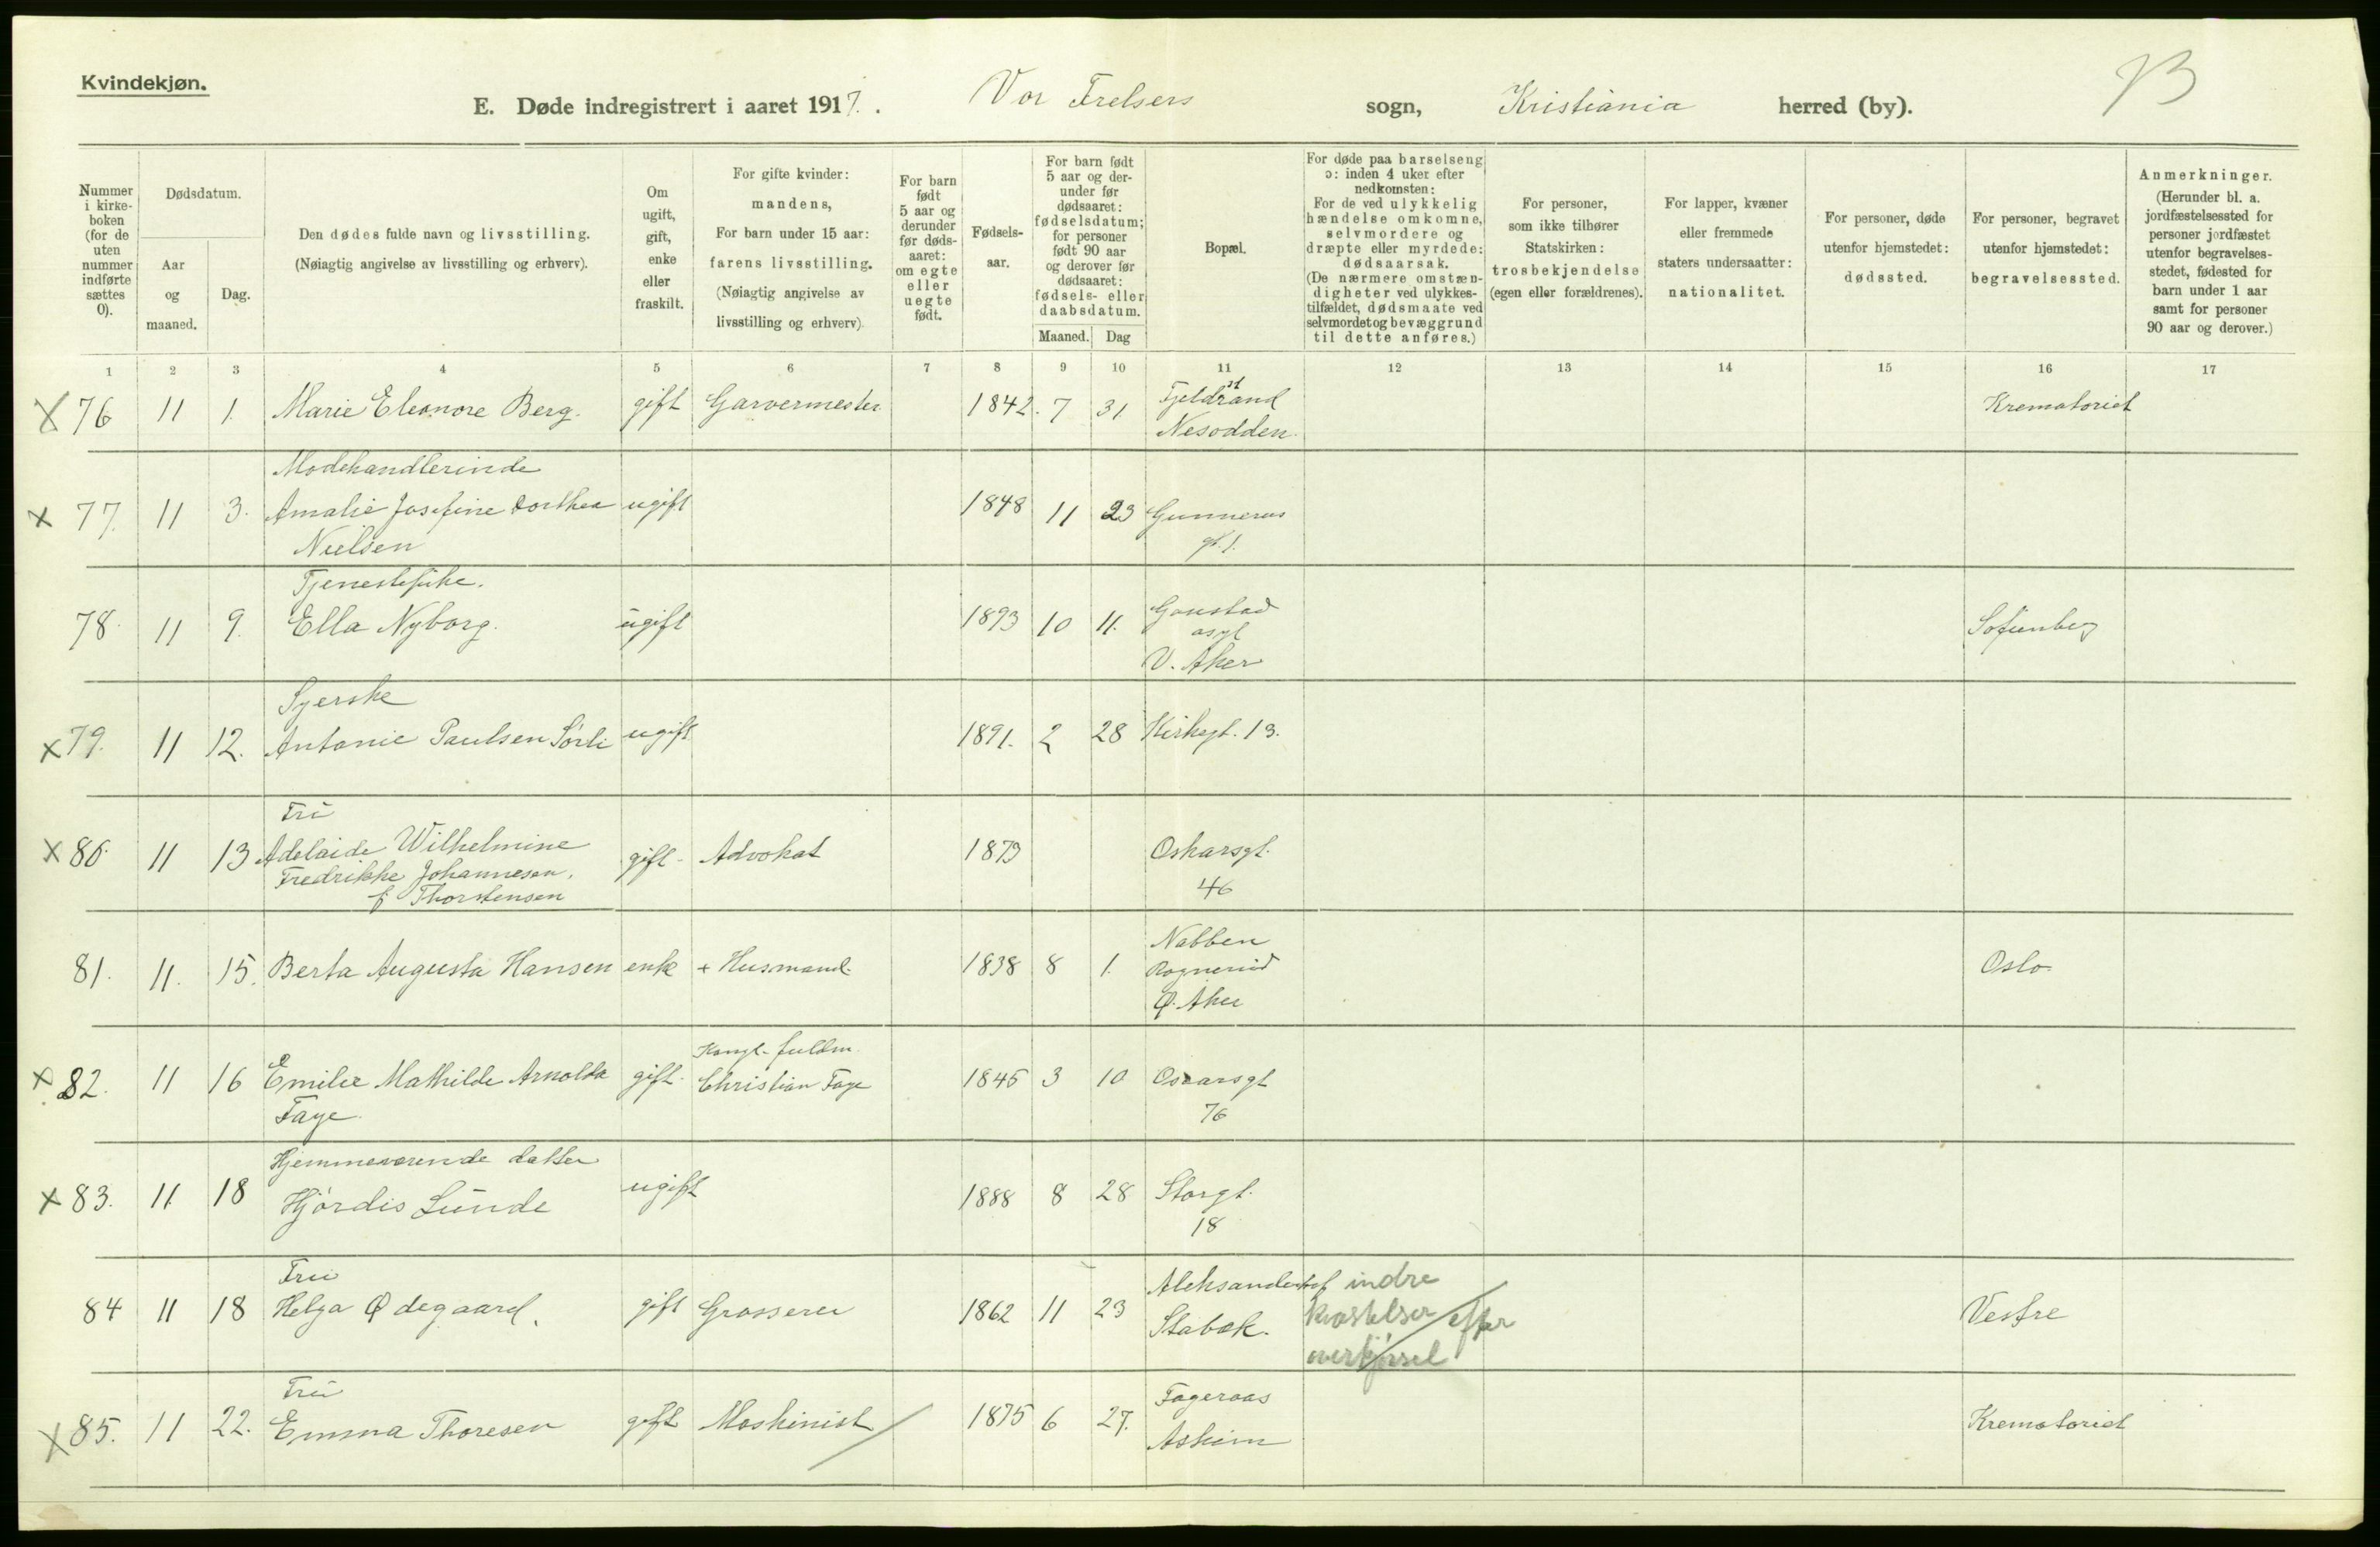 Kvindekjøn.
E. Døde indregistrert i aaret 1917. Vor Frelsers sogn, Kristiania herred (by).
Nummer i kirke-boken (for de uten nummer indførte sættes 0).
Dødsdatum.
Aar og maaned.
Dag.
Den dødes fulde navn og livsstilling.
(Nøiagtig angivelse av livsstilling og erhverv).
Om ugift, gift, enke eller fraskilt.
For gifte kvinder: mandens,
For barn under 15 aar: farens livsstilling.
(Nøiagtig angivelse av livsstilling og erhverv).
For barn født 5 aar og derunder før døds-aaret: om egte eller uegte født.
Fødsels-aar.
For barn født 5 aar og der-under før dødsaaret: fødselsdatum; for personer født 90 aar og derover før dødsaaret: fødsels- eller daabsdatum.
Maaned. Dag
Bopæl.
For døde paa barselseng ɔ: inden 4 uker efter nedkomsten:
For de ved ulykkelig hændelse omkomne, selvmordere og dræpte eller myrdede: dødsaarsak.
(De nærmere omstæn-digheter ved ulykkes-tilfældet, dødsmaate ved selvmordet og bevæggrund til dette anføres.)
For personer, som ikke tilhører Statskirken: trosbekjendelse (egen eller forældrenes).
For lapper, kvæner eller fremmede staters undersaatter: nationalitet.
For personer, døde utenfor hjemstedet: dødssted.
For personer, begravet utenfor hjemstedet: begravelsessted.
Anmerkninger.
(Herunder bl. a. jordfæstelsessted for personer jordfæstet utenfor begravelses-stedet, fødested for barn under 1 aar samt for personer 90 aar og derover.)
1 2 3 4 5 6 7 8 9 10 11 12 13 14 15 16 17
X 76 11 1. Marie Eleonore Berg. gift Garvermester 1842. 7 31. Fjeldstrand Krematoriet
Nesodden.
Modehandlerinde
x 77. 11 3. Amalie Josefine Dorthea ugift 1848 11 23 Gunnerus
Nielsen gt. 1.
Tjenestepike.
78. 11 9. Ella Nyborg. ugift 1893 10 11. Gaustad Sofienberg
asyl
V. Aker
Syerske
x 79. 11 12. Antonie Paulsen Sörli ugift 1891. 2 28 Kirkegt. 13.
Fru
x 80. 11 13 Adelaide Wilhelmine gift Advokat 1873 Oskarsgt.
Fredrikke Johannesen, 46
f. Thorstensen
81. 11. 15. Berta Augusta Hansen enke + Husmand. 1838 8 1. Nabben Oslo.
Rognerud
Ø. Aker
Kongl. fuldm.
x 82. 11 16 Emilie Mathilde Arnolda gift. Christian Faye 1845 3 10 Oscarsgt
Faye. 76
Hjemmeværende datter
x 83. 11 18 Hjördis Lunde ugift 1888 8 28 Storgt.
18
Fru
84 11 18 Helga Ødegaard. gift Grosserer 1862 11 23 Aleksanderhof indre Vestre
Stabæk. kvæstelser efter
overkjørsel
Fru
x 85. 11 22. Emma Thoresen gift Maskinist 1875 6 27. Fageraas Krematoriet
Askim